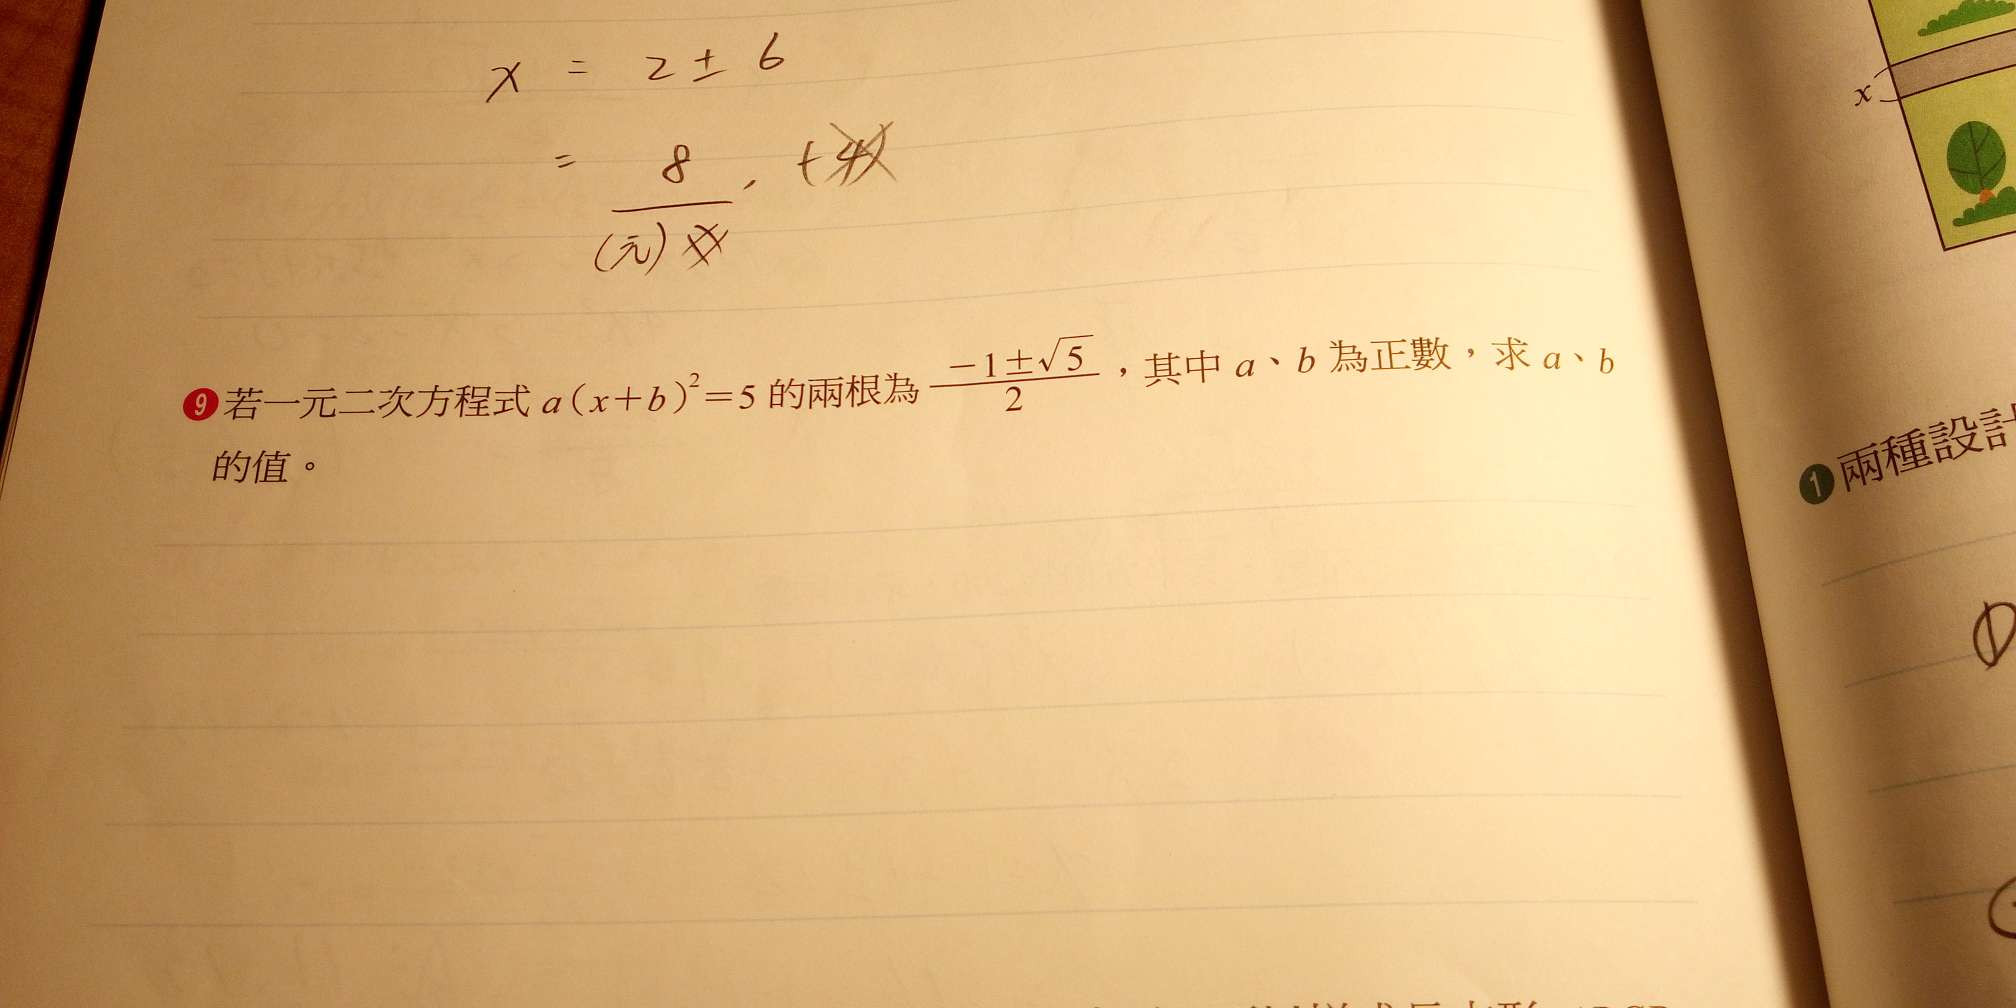 x = 2 ± 6
= 8 , (-4)
(元)
x
❾ 若一元二次方程式 a(x+b)²=5 的兩根為 (-1±√5)/2，其中 a、b 為正數，求 a、b
的值。
❶ 兩種設計
①